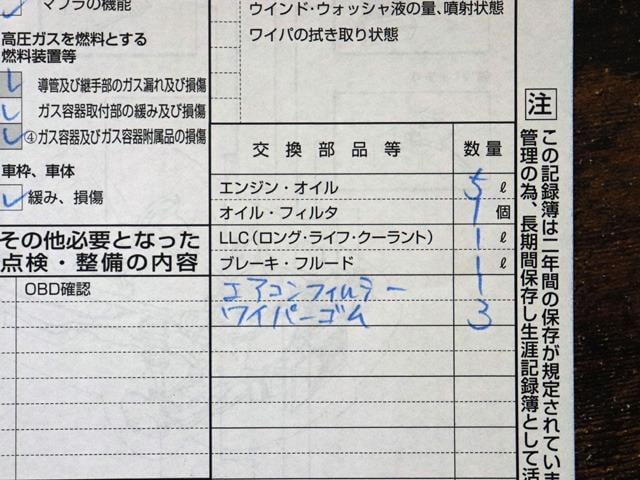 マフラの機能
高圧ガスを燃料とする
燃料装置等
導管及び継手部のガス漏れ及び損傷
ガス容器取付部の緩み及び損傷
④ガス容器及びガス容器附属品の損傷
車枠、車体
緩み、損傷
その他必要となった
点検・整備の内容
OBD確認
ウインド・ウォッシャ液の量、噴射状態
ワイパの拭き取り状態
交換部品等 数量
エンジン・オイル 5 ℓ
オイル・フィルタ 1 個
LLC(ロング・ライフ・クーラント) 1 ℓ
ブレーキ・フルード 1 ℓ
エアコンフィルター 1
ワイパーゴム 3
注
この記録簿は二年間の保存が規定されていま
管理の為、長期間保存し生涯記録簿として活